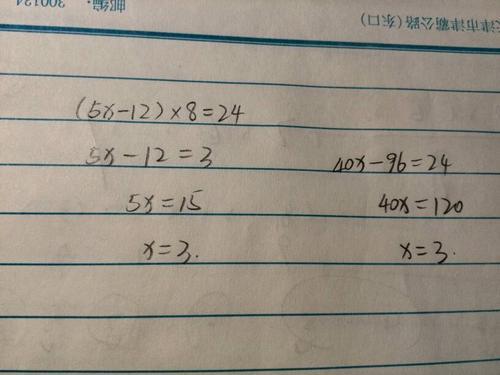 邮编：300134
天津市津霸公路(东口)
(5x-12)×8=24
5x-12=3
5x=15
x=3.
40x-96=24
40x=120
x=3.